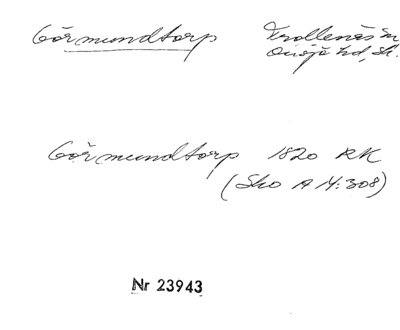 Görmundtorp Trollenäs sn
Onsjö hd, Sk.
Görmundtorp 1820 RK
(Sko A 14:308)
Nr 23943